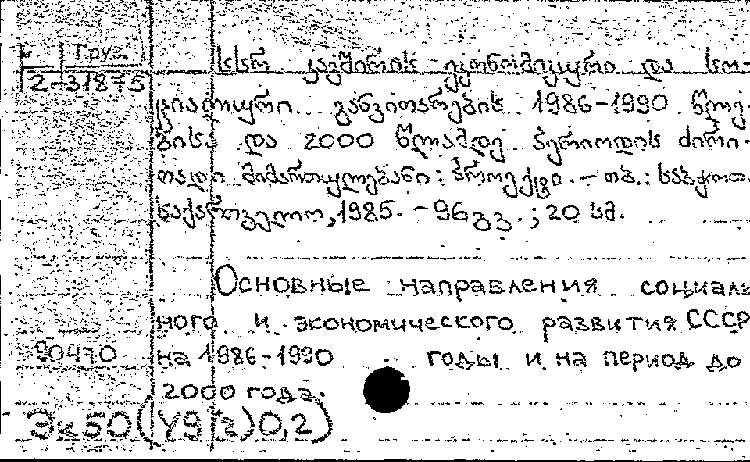 Груз.
2-31875
სსრ კავშირის ეკონომიკური და სო-
ციალური განვითარების 1986-1990 წლე-
ბისა და 2000 წლამდე პერიოდის ძირი-
თადი მიმართულებანი: პროექტი. - თბ.: საბჭოთა
საქართველო, 1985. - 96 გვ.; 20 სმ.
Основные направления социаль
ного и экономического развития СССР
90470 на 1986-1990 годы и на период до
2000 года.
Эк50(У9(2)0,2)